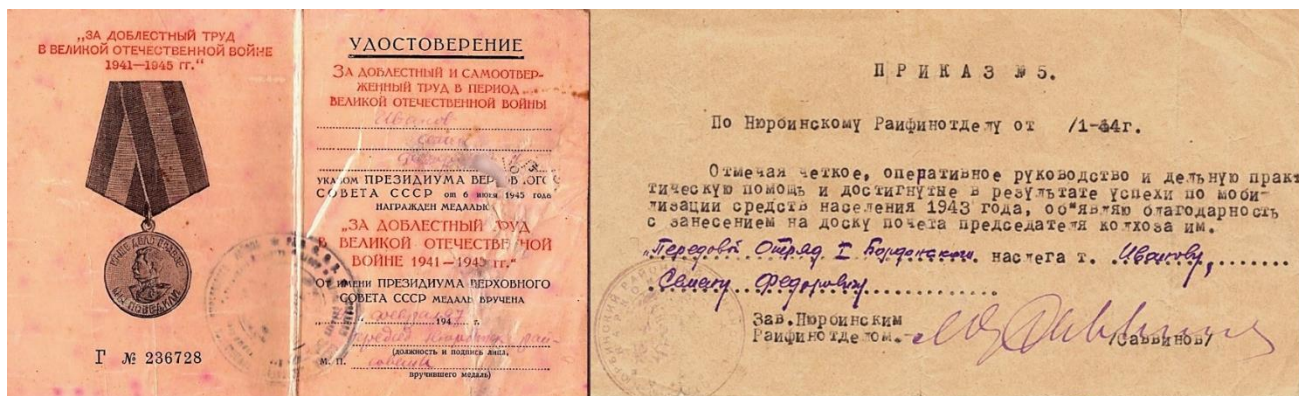 „ЗА ДОБЛЕСТНЫЙ ТРУД
В ВЕЛИКОЙ ОТЕЧЕСТВЕННОЙ ВОЙНЕ
1941—1945 гг.“
НАШЕ ДЕЛО ПРАВОЕ
МЫ ПОБЕДИЛИ
Г № 236728
УДОСТОВЕРЕНИЕ
ЗА ДОБЛЕСТНЫЙ И САМООТВЕР-
ЖЕННЫЙ ТРУД В ПЕРИОД
ВЕЛИКОЙ ОТЕЧЕСТВЕННОЙ ВОЙНЫ
Иванов
УКАЗОМ ПРЕЗИДИУМА ВЕРХОВНОГО
СОВЕТА СССР от 6 июня 1945 года
НАГРАЖДЕН МЕДАЛЬЮ
„ЗА ДОБЛЕСТНЫЙ ТРУД
В ВЕЛИКОЙ ОТЕЧЕСТВЕННОЙ
ВОЙНЕ 1941—1945 гг.“
ОТ ИМЕНИ ПРЕЗИДИУМА ВЕРХОВНОГО
СОВЕТА СССР МЕДАЛЬ ВРУЧЕНА
194 г.
М. П.
(должность и подпись лица,
вручившего медаль)
ПРИКАЗ № 5.
По Нюрбинскому Райфинотделу от /1-44г.
Отмечая четкое, оперативное руководство и дельную практ
тическую помощь и достигнутые в результате успехи по моби-
лизации средств населения 1943 года, об"являю благодарность
с занесением на доску почета председателя колхоза им.
„Передовой Отряд I Бордонского наслега т. Иванову,
Семену Федоровичу
Зав.Нюрбинским
Райфинотделом.- /Саввинов/